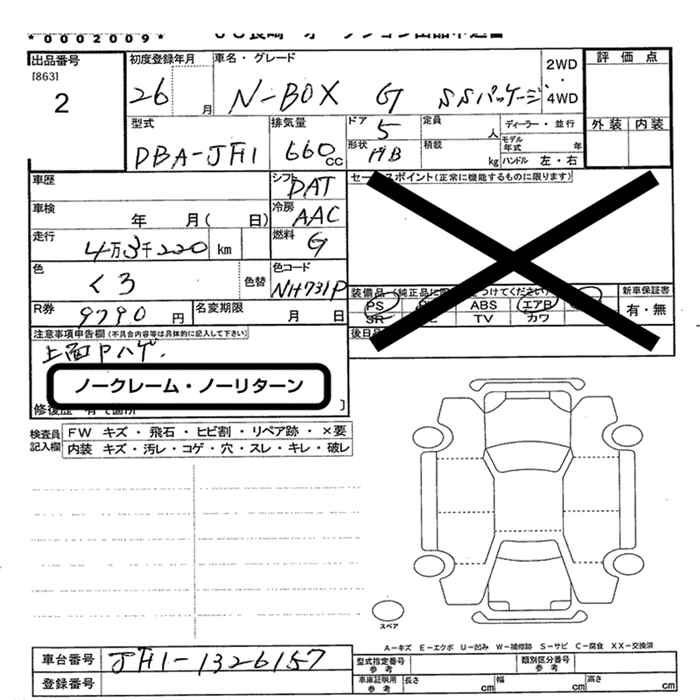 *0002009*
出品番号 初度登録年月 車名・グレード 2WD 評価点
[863]
2 26 月 N-BOX G SSパッケージ ・ 4WD
型式 排気量 ドア 5 定員 人 ディーラー・並行 外装 内装
DBA-JF1 660cc 形状 HB 積載 kg モデル年式 年
ハンドル 左・右
車歴 シフト DAT セールスポイント(正常に機能するものに限ります)
車検 年 月( 日) 冷房 AAC
走行 4万3千220 km 燃料 G
色 くろ 色替 色コード NH731P
装備品(純正品に つけてください) 新車保証書
PS ABS エアB 有・無
SR TV カワ
R券 9790 円 名変期限 月 日
注意事項申告欄(不具合内容等は具体的に記入して下さい) 後日
上面Pハゲ.
ノークレーム・ノーリターン
検査員記入欄 FW キズ・飛石・ヒビ割・リペア跡・×要
内装 キズ・汚レ・コゲ・穴・スレ・キレ・破レ
スペア
A-キズ E-エクボ U-凹み W-補修跡 S-サビ C-腐食 XX-交換済
車台番号 JF1-1326157 型式指定番号参考 類別区分番号参考
登録番号 車庫証明用参考 長さ cm 幅 cm 高さ cm